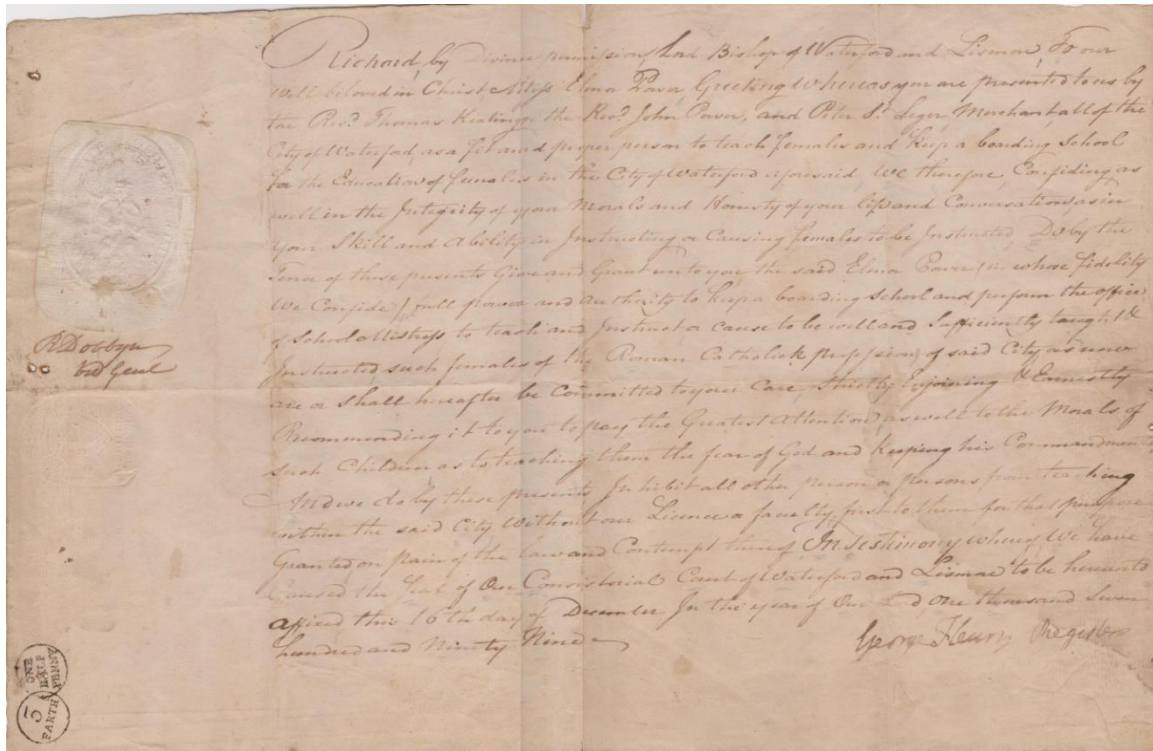 Richard, by Divine permission, Lord Bishop of Waterford and Lismore, To our
well beloved in Christ Miss Elena Power Greeting Whereas you are presented to us by
the Revd. Thomas Keating, the Revd. John Power, and Peter St. Leger, Merchant, all of the
City of Waterford, as a fit and proper person to teach females and keep a boarding School
for the Education of females in the City of Waterford aforesaid We therefore, Confiding, as
well in the Integrity of your Morals and Honesty of your life and Conversation, as in
your Skill and Ability in Instructing or Causing females to be Instructed, Do by the
Tenor of these presents Give and Grant unto you the said Elena Power (in whose fidelity
We Confide) full power and authority to keep a boarding School and perform the office
of School Mistress to teach and Instruct or cause to be well and Sufficiently taught &
Instructed such females of the Roman Catholick profession, of said City as now
are or shall hereafter be Committed to your Care, strictly Enjoining & Earnestly
Recommending it to you to pay the Greatest Attention, as well to the Morals of
such Children as to teaching them the fear of God and keeping his Commandments
And we do by these presents Inhibit all other person or persons from teaching
within the said City without our Lisence or faculty, first to them for that purpose
Granted on pain of the Law and Contempt thereof In Testimony whereof We have
Caused the Seal of Our Consistorial Court of Waterford and Lismore to be hereunto
affixed this 16th day of December In the year of Our Lord One thousand Seven
hundred and Ninety Nine
George Fleury Register
R Dobbyn
Genl
ONE
HALF
5